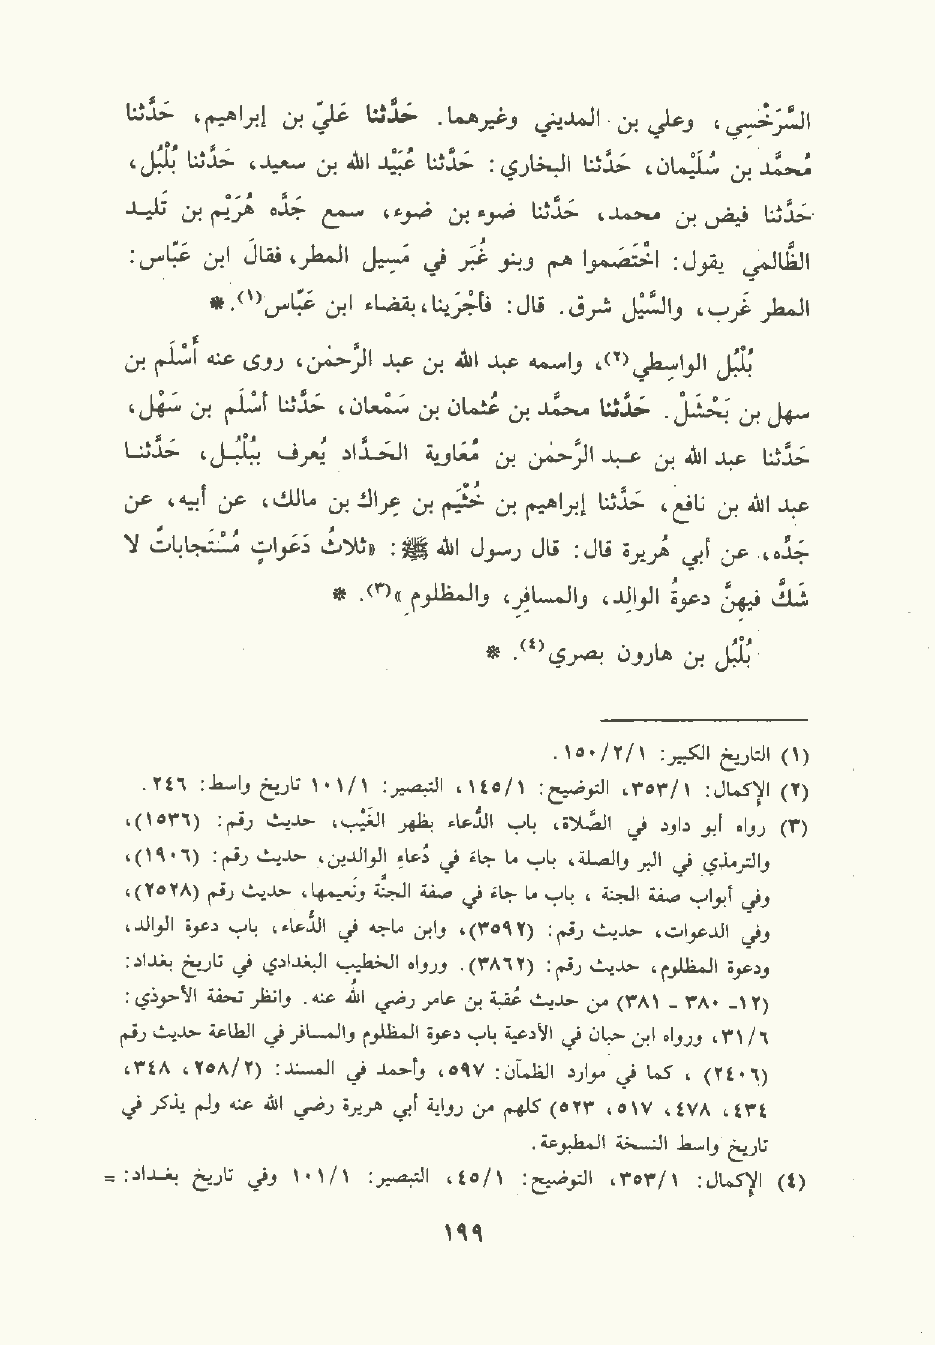 السَّرَخْسِي، وعلي بن المديني وغيرهما. حَدَّثنا عَليّ بن إبراهيم، حَدَّثنا
مُحمَّد بن سُلَيْمان، حَدَّثنا البخاري: حَدَّثنا عُبَيْد الله بن سعيد، حَدَّثنا بُلْبُل،
حَدَّثنا فيض بن محمد، حَدَّثنا ضوء بن ضوء، سمع جَدَّه هُرَيْم بن تَليد
الظَّالمي يقول: اخْتَصَموا هم وبنو غُبَر في مَسِيل المطر، فقال ابن عَبَّاس:
المطر غَرب، والسَّيْل شرق. قال: فأجْرَينا، بقضاء ابن عَبَّاس(١). *
بُلْبُل الواسِطي(٢)، واسمه عبد الله بن عبد الرَّحمٰن، روى عنه أَسْلَم بن
سهل بن بَحْشَل. حَدَّثنا محمَّد بن عُثمان بن سَمْعان، حَدَّثنا أسْلَم بن سَهْل،
حَدَّثنا عبد الله بن عبد الرَّحمٰن بن مُعَاوية الحَدَّاد يُعرف ببُلْبُل، حَدَّثنا
عبد الله بن نافع، حَدَّثنا إبراهيم بن خُثَيم بن عِراك بن مالك، عن أبيه، عن
جَدِّه، عن أبي هُريرة قال: قال رسول الله ﷺ: «ثلاثُ دَعَواتٍ مُسْتَجاباتٌ لا
شَكَّ فيهنَّ دعوةُ الوالِدِ، والمسافِرِ، والمظلومِ»(٣). *
بُلْبُل بن هارون بصري(٤). *
(١) التاريخ الكبير: ١/٢/١٥٠.
(٢) الإكمال: ١/٣٥٣، التوضيح: ١/١٤٥، التبصير: ١/١٠١ تاريخ واسط: ٢٤٦.
(٣) رواه أبو داود في الصَّلاة، باب الدُّعاء بظهر الغَيْب، حديث رقم: (١٥٣٦)،
والترمذي في البر والصلة، باب ما جاءَ في دُعاءِ الوالدين، حديث رقم: (١٩٠٦)،
وفي أبواب صفة الجنة، باب ما جاءَ في صفة الجنَّة ونَعيمها، حديث رقم (٢٥٢٨)،
وفي الدعوات، حديث رقم: (٣٥٩٢)، وابن ماجه في الدُّعاء، باب دعوة الوالد،
ودعوة المظلوم، حديث رقم: (٣٨٦٢). ورواه الخطيب البغدادي في تاريخ بغداد:
(١٢- ٣٨٠ - ٣٨١) من حديث عُقبة بن عامر رضي اللُه عنه. وانظر تحفة الأحوذي:
٦/٣١، ورواه ابن حبان في الأدعية باب دعوة المظلوم والمسافر في الطاعة حديث رقم
(٢٤٠٦) ، كما في موارد الظمآن: ٥٩٧، وأحمد في المسند: (٢/٢٥٨، ٣٤٨،
٤٣٤، ٤٧٨، ٥١٧، ٥٢٣) كلهم من رواية أبي هريرة رضي الله عنه ولم يذكر في
تاريخ واسط النسخة المطبوعة.
(٤) الإكمال: ١/٣٥٣، التوضيح: ١/٤٥، التبصير: ١/١٠١ وفي تاريخ بغداد: =
١٩٩